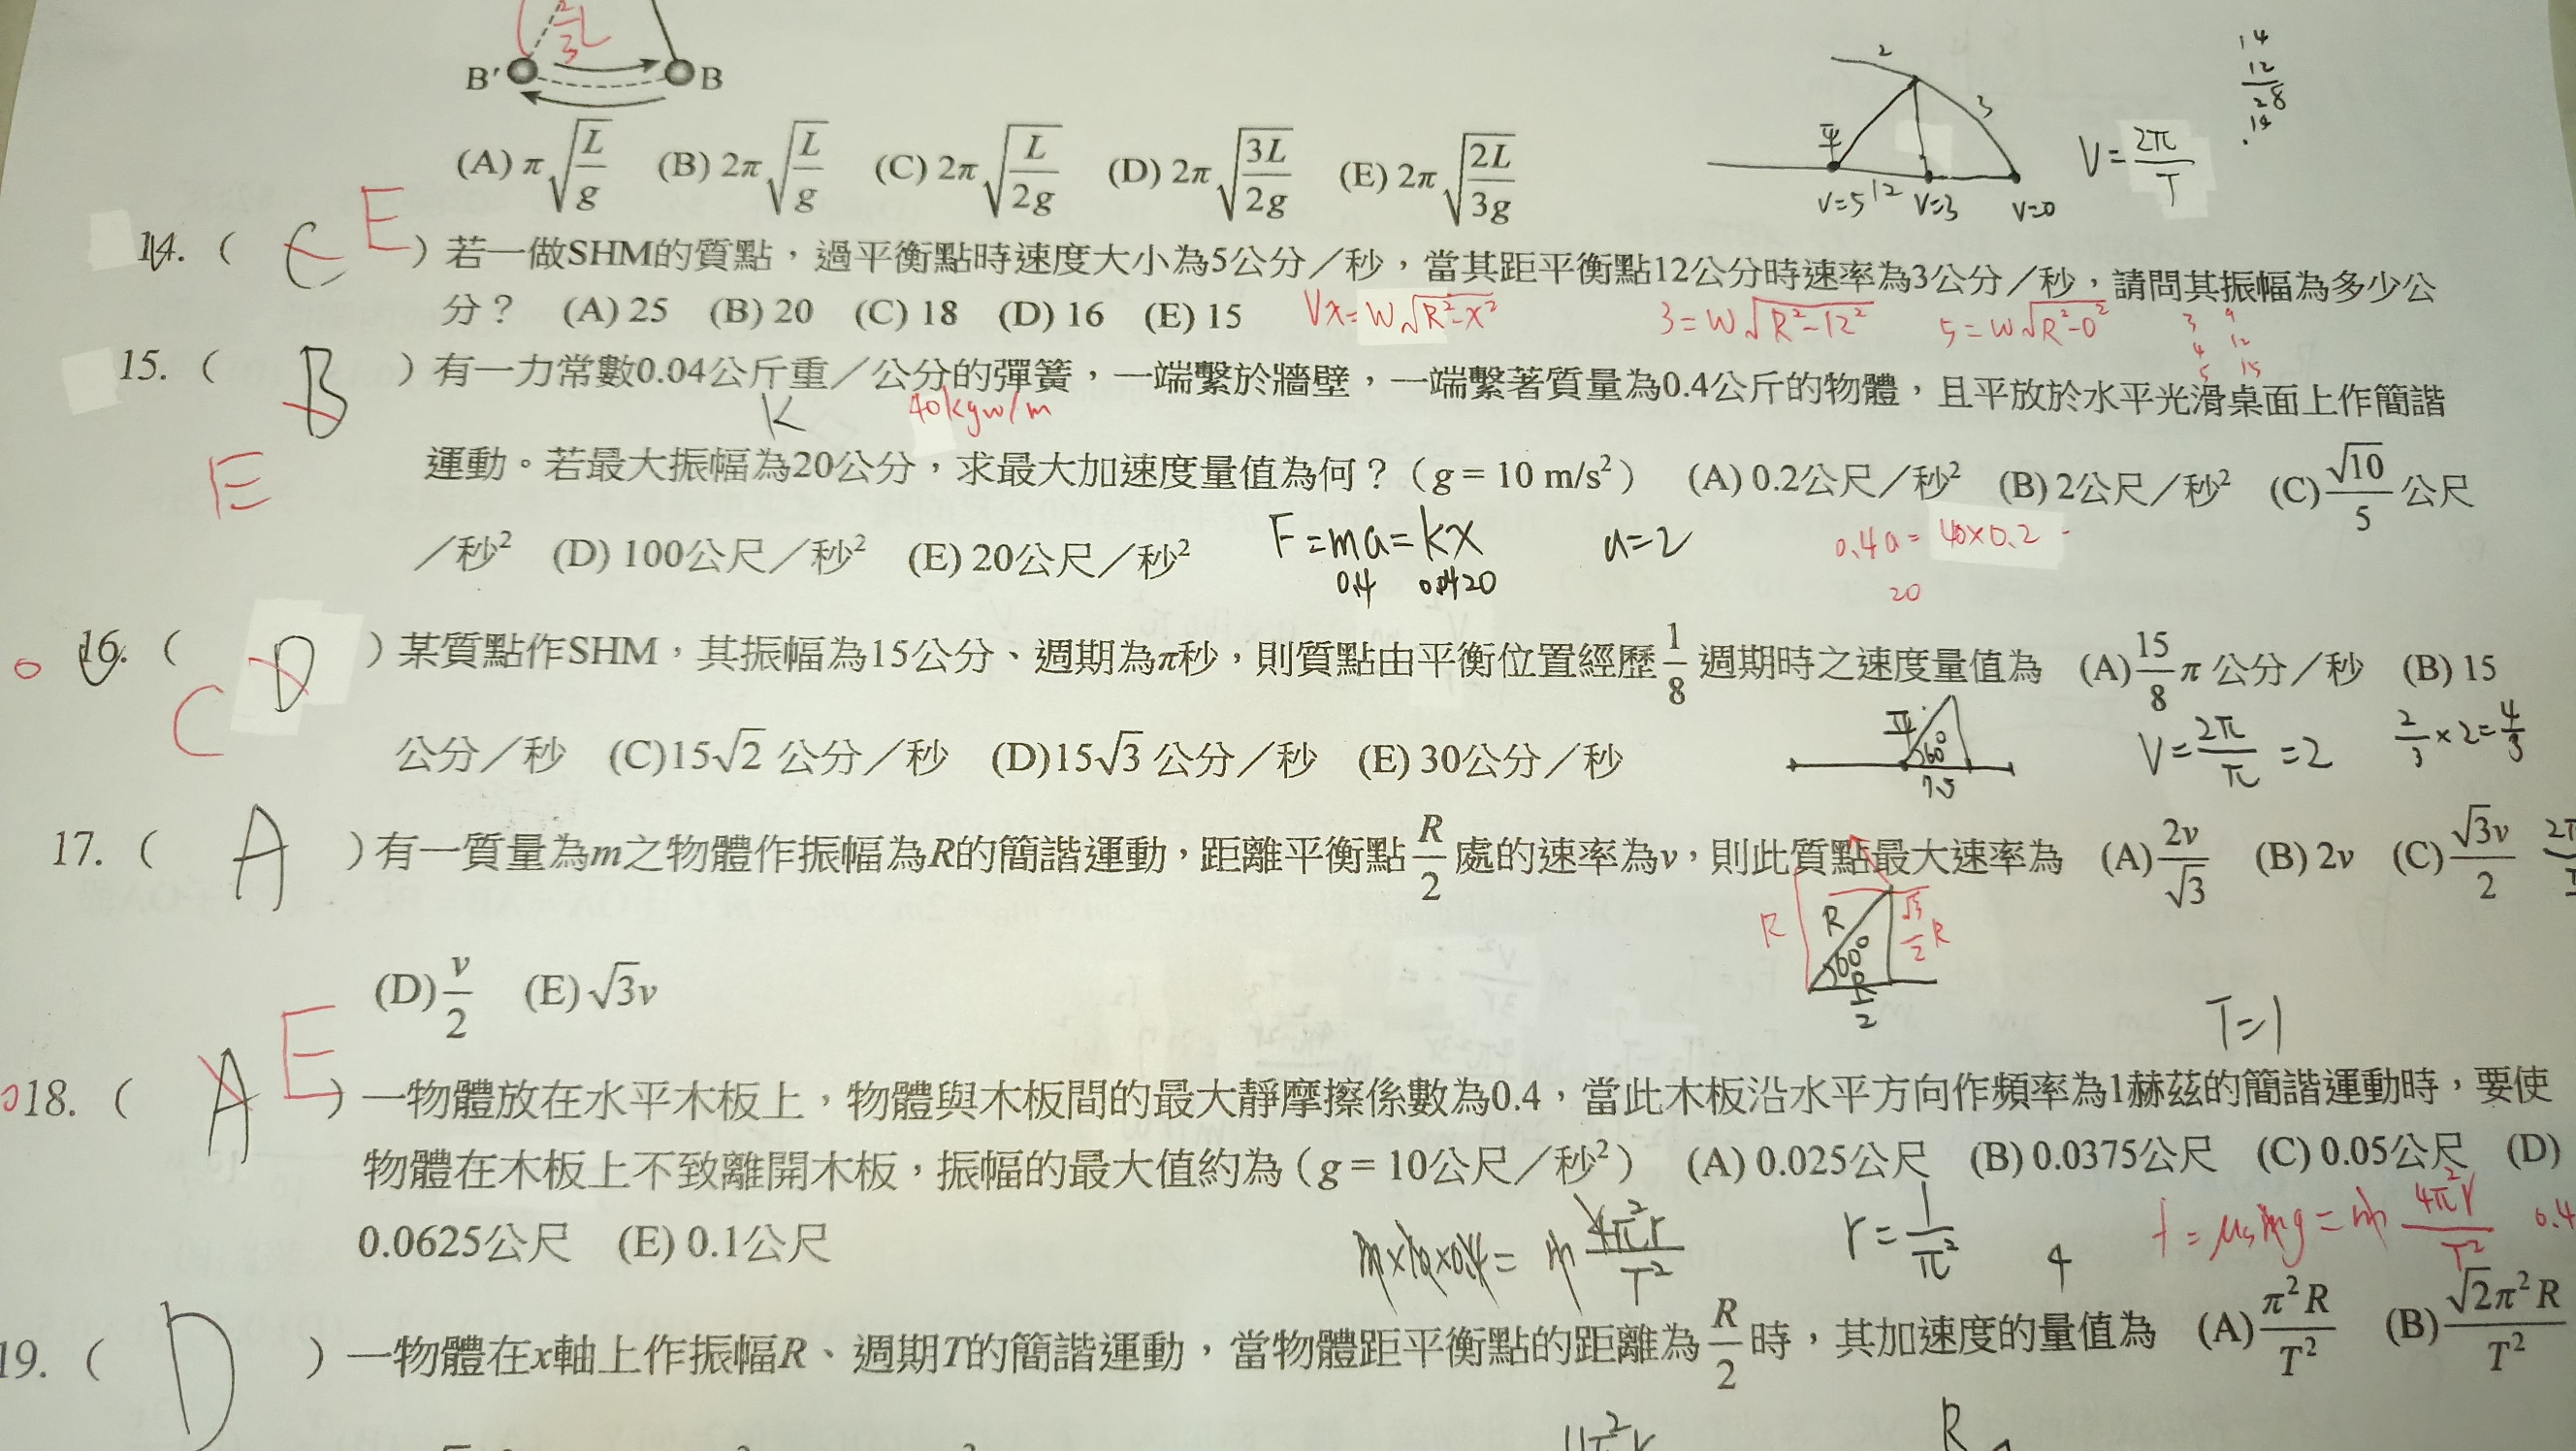 2/3 L
B' B
(A) π√(L/g) (B) 2π√(L/g) (C) 2π√(L/2g) (D) 2π√(3L/2g) (E) 2π√(2L/3g)
2
3
平
V=5 12 V=3 V=0
V=2π/T
14
12
28
14. ( C E ) 若一做SHM的質點，過平衡點時速度大小為5公分／秒，當其距平衡點12公分時速率為3公分／秒，請問其振幅為多少公
分？ (A) 25 (B) 20 (C) 18 (D) 16 (E) 15
Vx=W√(R²-x²) 3=W√(R²-12²) 5=W√(R²-0²)
3 9
4 12
5 15
15. ( B ) 有一力常數0.04公斤重／公分的彈簧，一端繫於牆壁，一端繫著質量為0.4公斤的物體，且平放於水平光滑桌面上作簡諧
K 40kgw/m
E
運動。若最大振幅為20公分，求最大加速度量值為何？（g = 10 m/s²） (A) 0.2公尺／秒² (B) 2公尺／秒² (C) √10/5 公尺
／秒² (D) 100公尺／秒² (E) 20公尺／秒²
F=ma=kx a=2 0.4a=40×0.2
0.4 20
20
16. ( D ) 某質點作SHM，其振幅為15公分、週期為π秒，則質點由平衡位置經歷1/8週期時之速度量值為 (A) 15/8 π 公分／秒 (B) 15
C
公分／秒 (C)15√2 公分／秒 (D)15√3 公分／秒 (E) 30公分／秒
平 60° 7.5
V=2π/π=2 2/3×2=4/3
17. ( A ) 有一質量為m之物體作振幅為R的簡諧運動，距離平衡點R/2處的速率為v，則此質點最大速率為 (A) 2v/√3 (B) 2v (C) √3v/2
R R 60° R/2 √3/2 R
(D) v/2 (E) √3v
T=1
18. ( A E ) 一物體放在水平木板上，物體與木板間的最大靜摩擦係數為0.4，當此木板沿水平方向作頻率為1赫茲的簡諧運動時，要使
物體在木板上不致離開木板，振幅的最大值約為（g = 10公尺／秒²） (A) 0.025公尺 (B) 0.0375公尺 (C) 0.05公尺 (D)
0.0625公尺 (E) 0.1公尺
m×10×0.4=m 4π²r/T² r=1/π² 4 f=μsmg=m 4π²r/T² 0.4
19. ( D ) 一物體在x軸上作振幅R、週期T的簡諧運動，當物體距平衡點的距離為R/2時，其加速度的量值為 (A) π²R/T² (B) √2π²R/T²
R